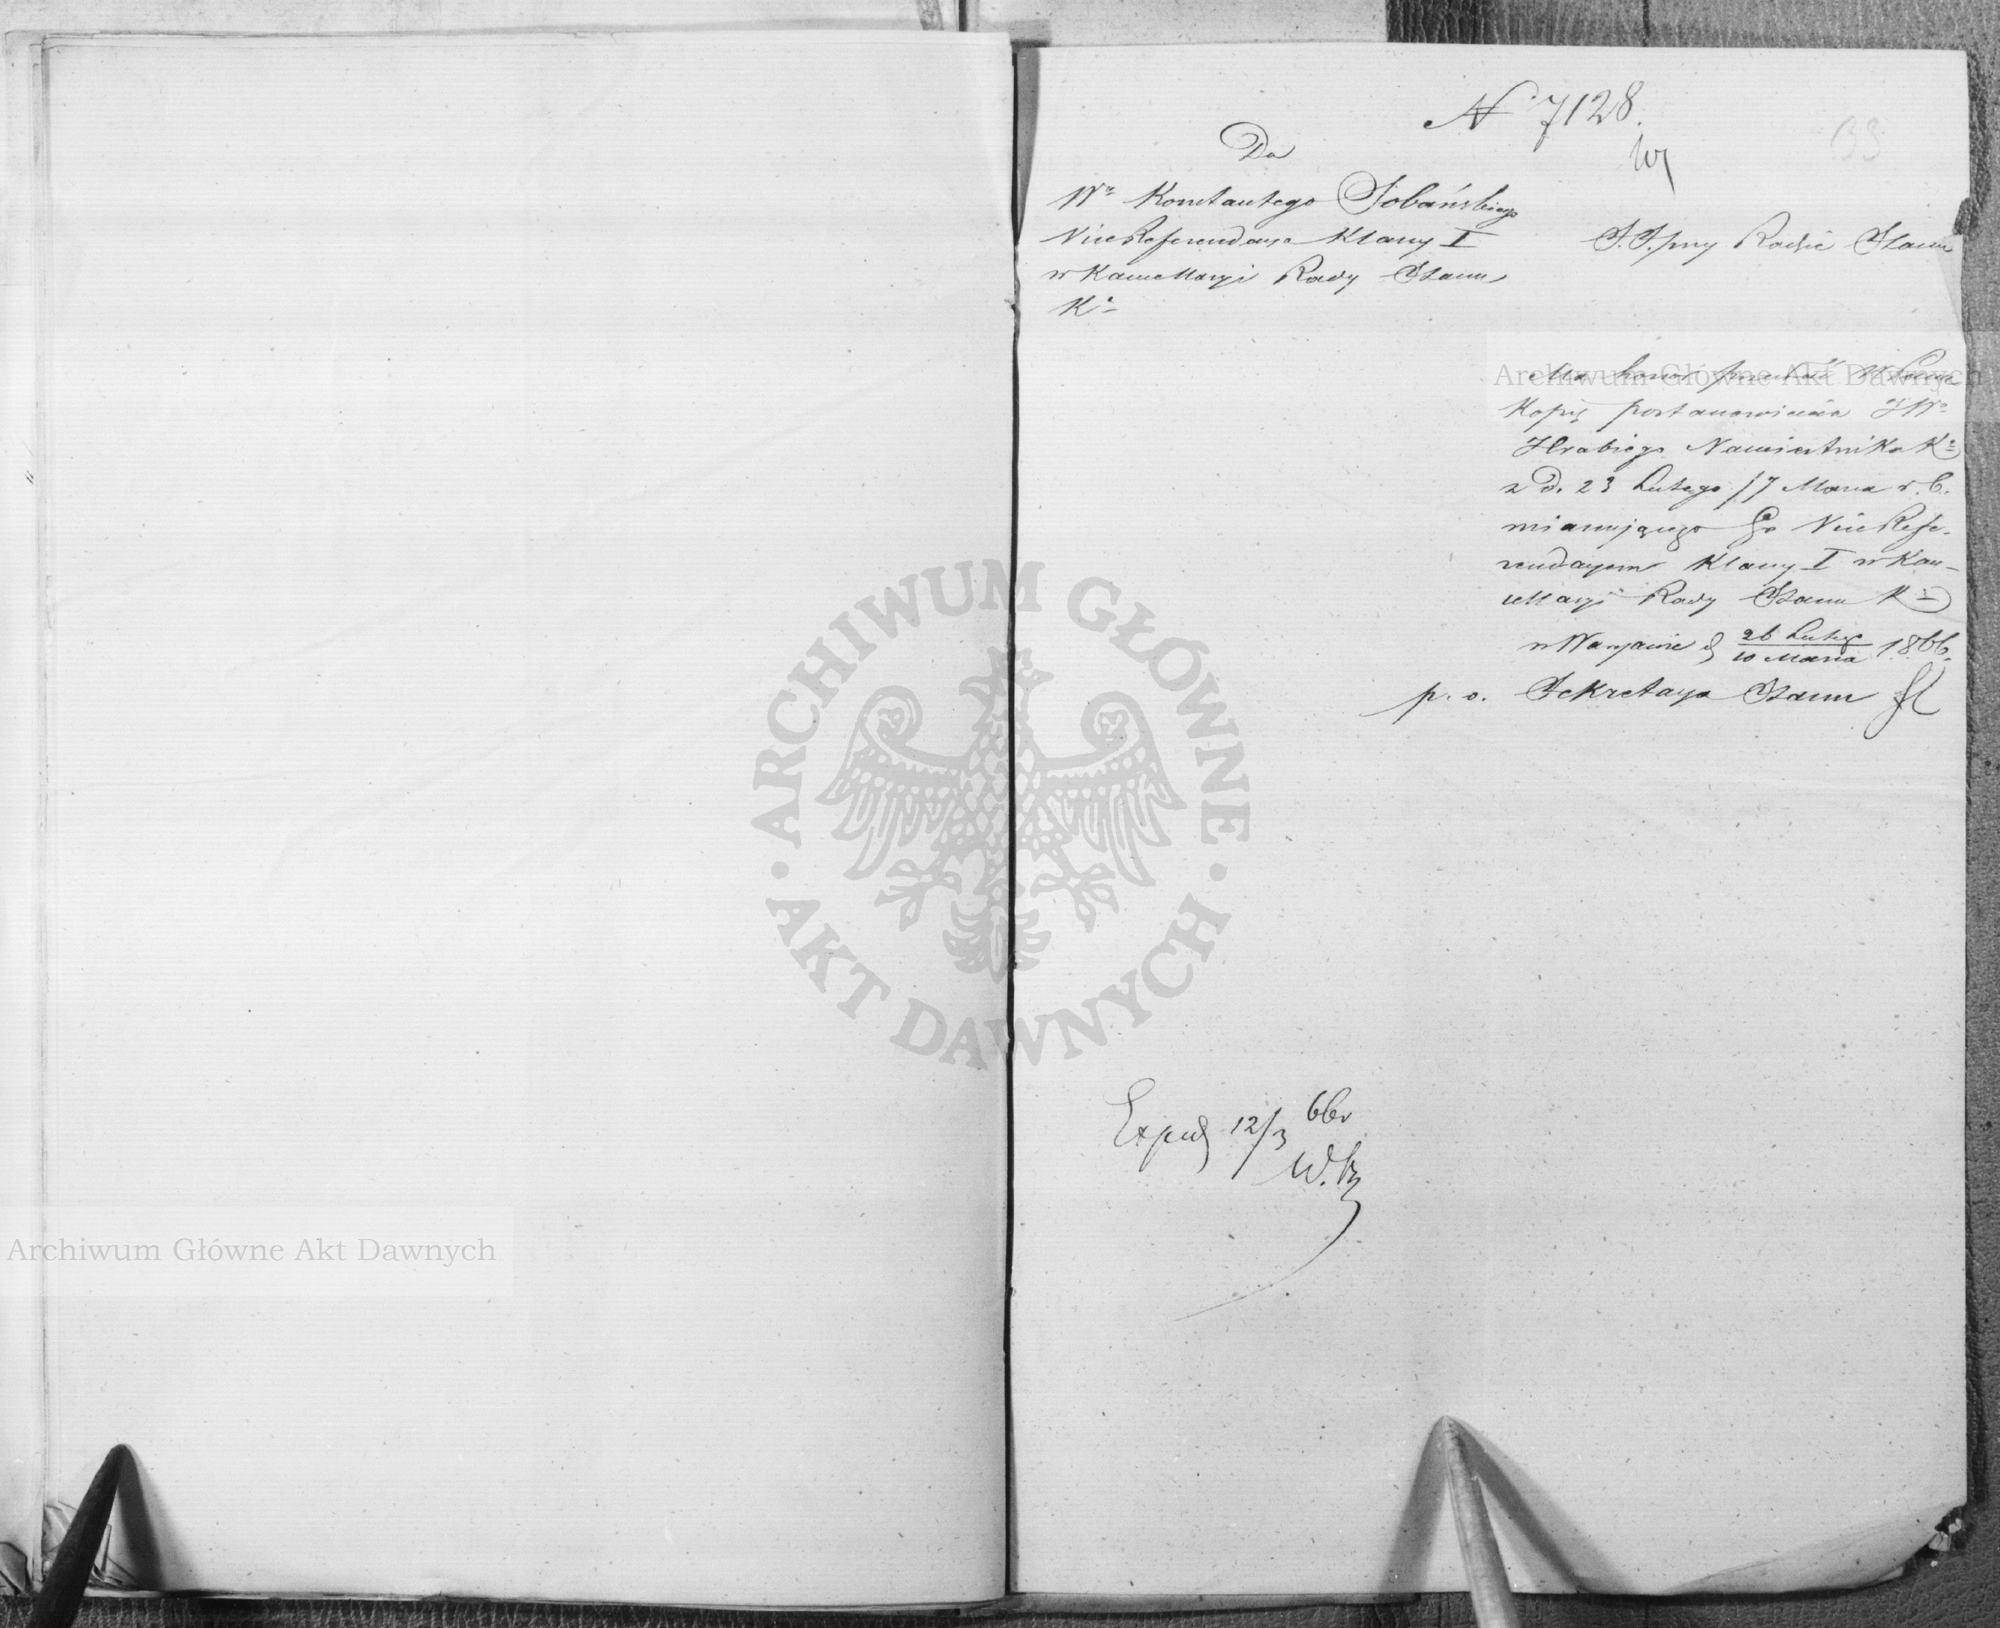 N 7128.
33
Do
Wo Konstantego Sobańskiego
ViceReferendarza Klassy I
w Kancellaryi Rady Stanu
Ka
S. S. przy Radzie Stanu
Ma honor przesłać WPanu
Kopię postanowienia JWo
Hrabiego Namiestnika Ka
z d. 23 Lutego / 7 Marca r. b.
mianującego Go ViceRefe-
rendarzem Klassy I w Kan-
cellaryi Rady Stanu Ka
w Warszawie d 26 Lutego / 10 Marca 1866.
p. o. Sekretarza Stanu
Exped 12/3 66r
ARCHIWUM GŁÓWNE AKT DAWNYCH
Archiwum Główne Akt Dawnych
Archiwum Główne Akt Dawnych